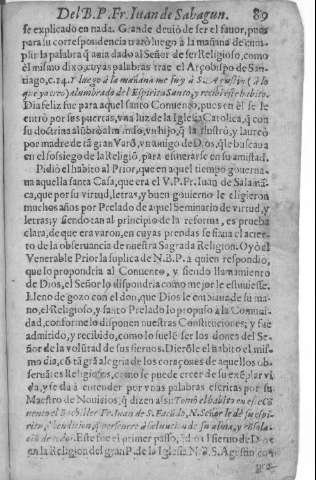 Del B. P. Fr. Iuan de Sahagun. 89
se explicado en nada. Grande deuió de ser el fauor, pues
para su correspondencia trazò luego à la mañana de cum-
plir la palabra q̃ auia dado al Señor de ser Religioso, como
el mismo dixo, cuyas palabras trae el Arçobispo de San-
tiago, c. 14. Y luego à la mañana me fuy à S. Agustin (à lo
que yo creo) alumbrado del Espiritu Santo, y recibi este habito.
Dia feliz fue para aquel santo Conuento, pues en èl se le
entrò por sus puertas, vna luz de la Iglesia Catolica, q̃ con
su doctrina alũbrò al mũdo, vn hijo, q̃ la ilustrò, y laureò
por madre de tã gran Varõ, vn amigo de Dios, q̃ le buscaua
en el sosiego de la Religiõ, para esmerarse en su amistad.
Pidiò el habito al Prior, que en aquel tiempo gouerna-
na aquella santa Casa, que era el V. P. Fr. Iuan de Salamã-
ca, que por su virtud, letras, y buen gouierno le eligieron
muchos años por Prelado de aquel Seminario de virtud, y
letras; y siendo tan al principio de la reforma, es prueba
clara, de que era varon, en cuyas prendas se fiaua el acier-
to de la obseruancia de nuestra Sagrada Religion. Oyò el
Venerable Prior la suplica de N. B. P. a quien respondiò,
que lo propondria al Conuento, y siendo llamamiento
de Dios, el Señor lo dispondria como mejor le estuuiesse.
Lleno de gozo con el don, que Dios le embiaua de su ma-
no, el Religioso, y santo Prelado lo propuso a la Comuni-
dad, conforme lo disponen nuestras Constituciones; y fue
admitido, y recibido, como lo suelẽ ser los dones del Se-
ñor de la volũtad de sus siervos. Dieròle el habito el mis-
mo dia, cõ tã grã alegria de los coraçones de aquellos ob-
seruãtes Religiosos, como se puede creer de su exẽplar vi-
da, y se dà à entender por vnas palabras escritas por su
Maestro de Nouicios, q̃ dizen assi: Tomò el habito en este Cõ-
uento el Bachiller Fr. Iuan de S. Facũdo, N. Señor le dè su espi-
ritu, y bendicion, q̃ perseuere à saluacion de su alma, y cõsola-
ciõ de todos. Este fue el primer passo, q̃ diò el sieruo de Dios
en la Religion del gran P. de la Iglesia N. P. S. Agustin con